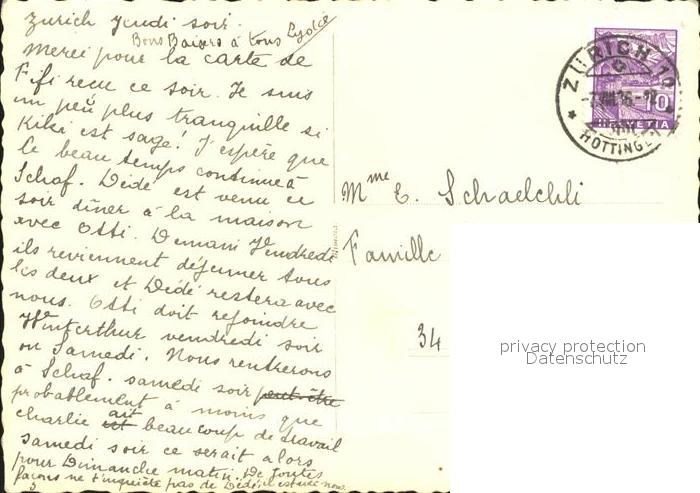 Zurich Jeudi soir.
Bons Baisers à tous
Merci pour la carte de
Fifi reçu ce soir. Je suis
un peu plus tranquille si
Kiki est sage! J'espère que
le beau temps continue à
Schaf. Dédé est venu ce
soir dîner à la maison
avec Otti. Demain Vendredi
ils reviennent déjeuner tous
les deux et Dédé restera avec
nous. Otti doit rejoindre
Winterthur vendredi soir
ou Samedi. Nous rentrerons
à Schaf. samedi soir peut-être
probablement à moins que
Charlie est ait beaucoup de travail
samedi soir ce serait alors
pour Dimanche matin. De toutes
façons ne t'inquiète pas de Dédé, il est avec nous.
ZÜRICH 10
HOTTINGEN
10
HELVETIA
Mme E. Schaelchli
Famille
34
privacy protection
Datenschutz